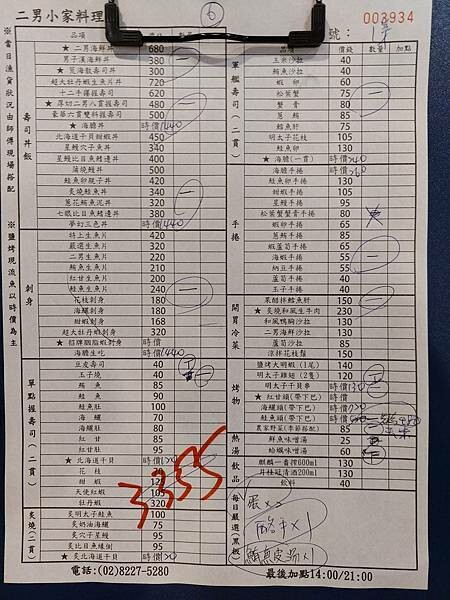 二男小家料理
6
003934
號：
品項 價錢 數量 加點
※當日漁貨狀況由師傅現場搭配
※鹽烤現流魚以時價為主
壽司丼飯
★ 二男海鮮丼 680
男子漢海鮮丼 380
★ 炙海散壽司丼 300
超大牡丹蝦生魚片丼 720
十二手握握壽司 480
★ 厚切二男八貫握壽司 480
豪華六貫雙料握壽司 500
★ 海膽丼 時價1440
北海道干貝甜蝦丼 450
星鰻穴子魚丼 340
星鰻比目魚鰭邊丼 400
蒲燒鰻丼 500
鮭魚卵親子丼 420
炙燒鮭魚丼 340
蔥花鮪魚泥丼 320
七眼比目魚鰭邊丼 380
夢幻三色丼 時價1440
刺身
特上生魚片 420
嚴選生魚片 320
二男生魚片 220
鮪魚生魚片 210
紅甘生魚片 200
鮭魚生魚片 240
花枝刺身 180
海鱺刺身 180
甜蝦刺身 168
超大牡丹蝦刺身 320
★ 招牌胭脂蝦刺身 時價
海膽生吃 時價1440
單點握壽司(二貫)
豆皮壽司 40
玉子燒 40
鮪魚 85
鮭魚 90
鮭魚肚 100
海鱺 70
海鱺肚 80
紅甘 81
紅甘肚 95
★ 北海道干貝 時價
花枝
甜蝦 120
天使紅蝦 105
牡丹蝦 320
炙燒(二貫)
炙明太子鮭魚 100
炙奶油海鱺 75
炙穴子星鰻 95
炙比目魚緣側 95
★ 炙北海道干貝 時價
3355
電話:(02)8227-5280
軍艦壽司(二貫)
玉魚沙拉 40
鮪魚沙拉 40
蝦卵 60
松葉蟹 75
蟹膏 80
蔥鮪 85
鱈魚肝 75
明太子花枝 105
鮭魚卵 130
★ 海膽(一貫) 時價260
手捲
海膽手捲 時價260
鮭魚卵手捲 130
甜蝦手捲 105
星鰻手捲 95
松葉蟹蟹膏手捲 80
蝦卵手捲 65
蔥鮪手捲 85
蝦蘆筍手捲 65
海蝦手捲 55
納豆手捲 55
蘆筍手捲 40
玉子手捲 40
開胃冷菜
果醋拌鱈魚肝 150
★ 炙燒和風生牛肉 230
和風鴨胸沙拉 130
二男海鮮沙拉 130
蘆筍沙拉 85
涼拌花枝鬚 150
烤物
鹽烤大明蝦(1尾) 140
明太子雞翅(2隻) 120
明太子干貝串 時價130
★ 紅甘頭(帶下巴) 時價
海鱺頭(帶下巴) 時價
鮭魚頭(帶下巴) 時價
農家野菜(季節搭配) 85
熱湯
鮮魚味噌湯 25
蛤蠣味噌湯 60
飲品
麒麟一番搾600ml 130
月桂冠清酒200ml 130
飲料 40
每日嚴選(黑板)
魚皮湯x1
最後加點14:00/21:00